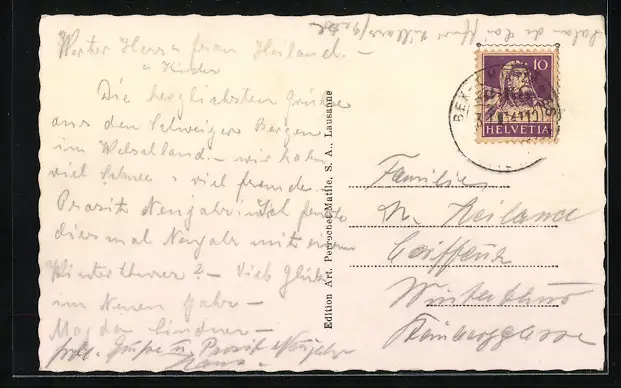 Werter Herr u Frau Heiland. –
u Kinder
Die herzlichsten Grüsse
aus den Schweizer Bergen
im Welschland. – wir haben
viel Schnee u viel Freude.
Prosit Neujahr.
diesmal Neujahr mit einem
Winterthurer? – Viel Glück
im Neuen Jahr –
Magda Lindner –
Grüsse u. Prosit Neujahr
Hans. –
Edition Art. Perrochet-Matile, S. A., Lausanne
10
HELVETIA
BEX
Familie
Heiland
Coiffeur
Winterthur
Steinberggasse